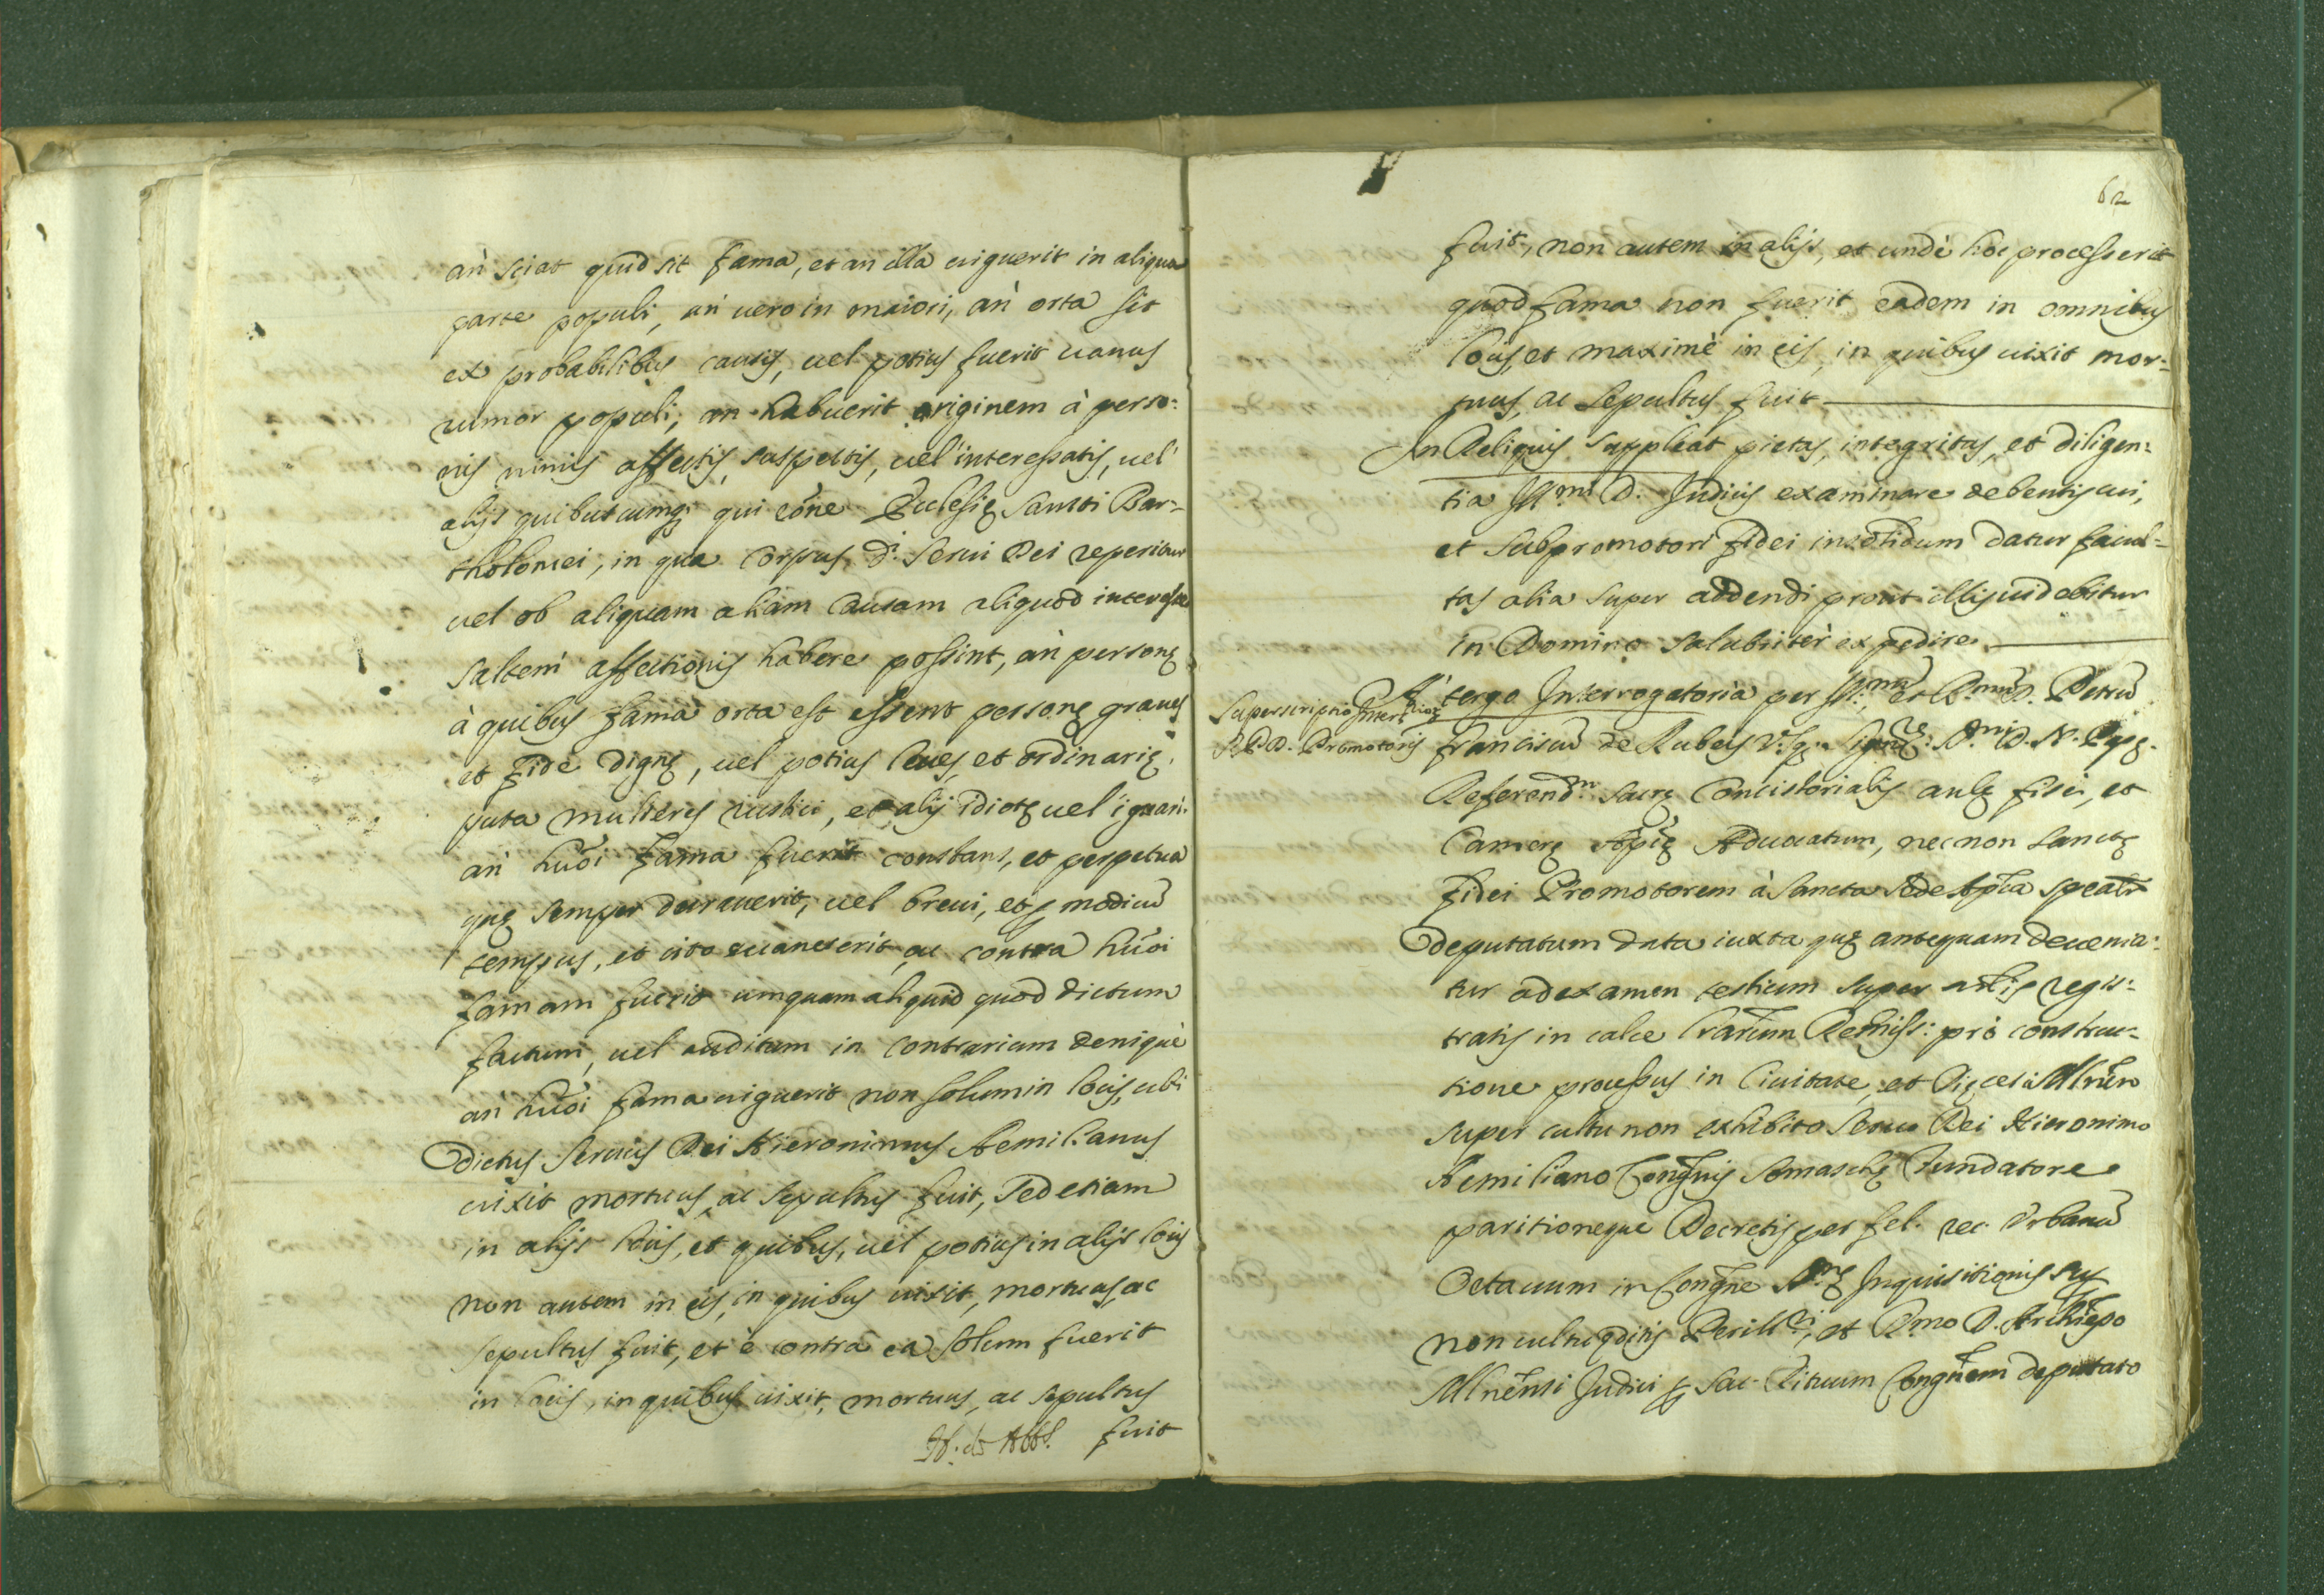 an sciat quid sit fama, et an illa uiguerit in aliqua
parte populi, an uero in maiori, an orta sit
ex probabilibus causis, uel potius fuerit uanus
rumor populi, an habuerit originem à perso-
nis nimis affectis, suspectis, uel interessatis, uel
alijs quibuscumq; qui cōne Ecclesię Sancti Bar-
tholomei, in qua corpus d.i Serui Dei reperitur
uel ob aliquam aliam causam aliquod interesse
saltem affectionis habere possint, an personę
à quibus fama orta est essent personę graues
et fide dignę, uel potius leues, et ordinarię,
puta mulieres rustici, et alij idiotę uel ignari.
an huōi fama fuerit constans, et perpetua
quę semper durauerit, uel breui, et p modicū
tempus, et cito euanuerit, ac contra huōi
famam fuerit umquam aliquid quod dictum
factum, uel auditum in contrarium deniquè
an huōi fama uiguerit non solum in locis, ubi
dictus Seruus Dei Hieronimus Aemilianus
uixit mortuus, ac sepultus fuit, sed etiam
in alijs locis, et quibus, uel potius in alijs locis
non autem in eis, in quibus uixit, mortuus, ac
sepultus fuit, et è contra ea solum fuerit
in locis, in quibus uixit, mortuus, ac sepultus
fuit
62
fuit, non autem in alijs, et undè hoc processerit
quod fama non fuerit eadem in omnibus
locis, et maximè in eis, in quibus uixit mor-
tuus, ac sepultus fuit
In Reliquis suppleat pietas, integritas, et diligen-
tia Ill.mi D. Judicis examinare debentis cui,
et subpromotori fidei insolidum datur facul-
tas alia super addendi prout illis uidebitur
in Domino salubriter expedire
Superscriptio Interrior.
R. P. D. Promotoris
A' tergo Interrogatoria per Ill.mū, et R.mū D. Petrū
Franciscū de Rubeis V. Sig.re D.mi D. N. Ppę
Referend.m sacrę Concistorialis aulę fisci, et
Camerę Apcę Aduocatum, nec non Sanctę
fidei Promotorem à Sancta Sede Aplca spealr
deputatum data iuxta quę antequam deuenia-
tur ad examen testium super artlis regis-
tratis in calce lrarum Remiss: pro construc-
tione processus in Ciuitate, et Dięcesi Mlnēn
super cultu non exhibito Seruo Dei Hieronimo
Aemiliano Congnis Somaschę fundatore
paritioneque Decretis per fel. rec. Vrbanū
Octauum in Congne S.tę Inquisitionis sup
non cultu ęditis Perill.ri, et R.mo D. Archiepo
Mlnēnsi Judici p Sac. Rituum Congnem deputato